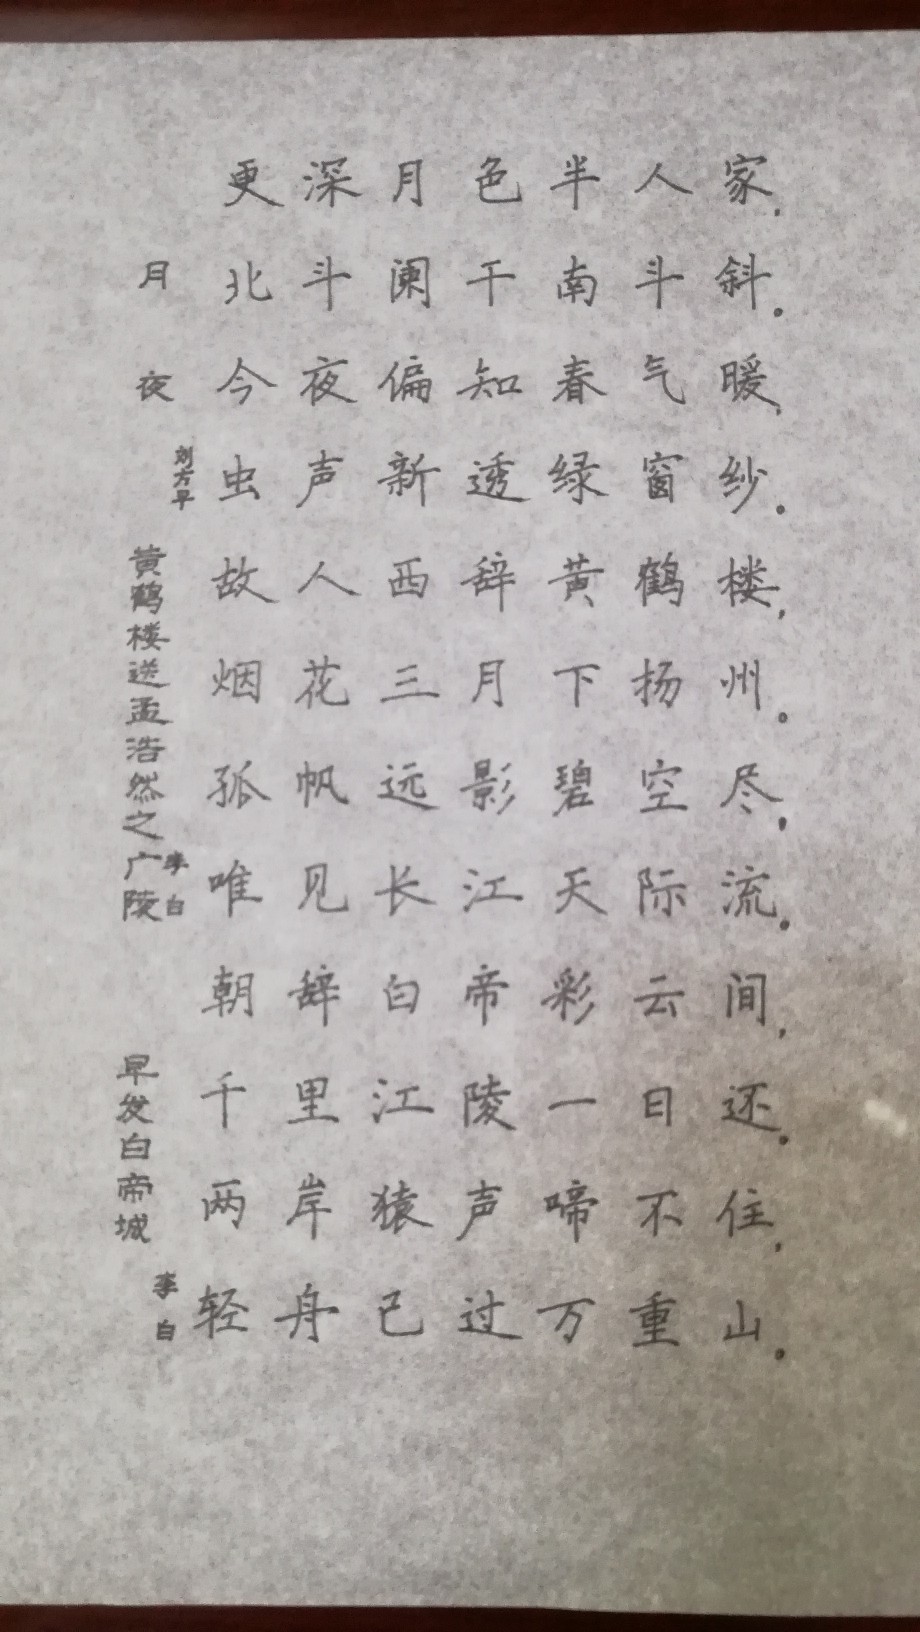 月夜
刘方早
更深月色半人家,
北斗阑干南斗斜。
今夜偏知春气暖,
虫声新透绿窗纱。
黄鹤楼送孟浩然之广陵
李白
故人西辞黄鹤楼,
烟花三月下扬州。
孤帆远影碧空尽,
唯见长江天际流。
早发白帝城
李白
朝辞白帝彩云间,
千里江陵一日还。
两岸猿声啼不住,
轻舟已过万重山。